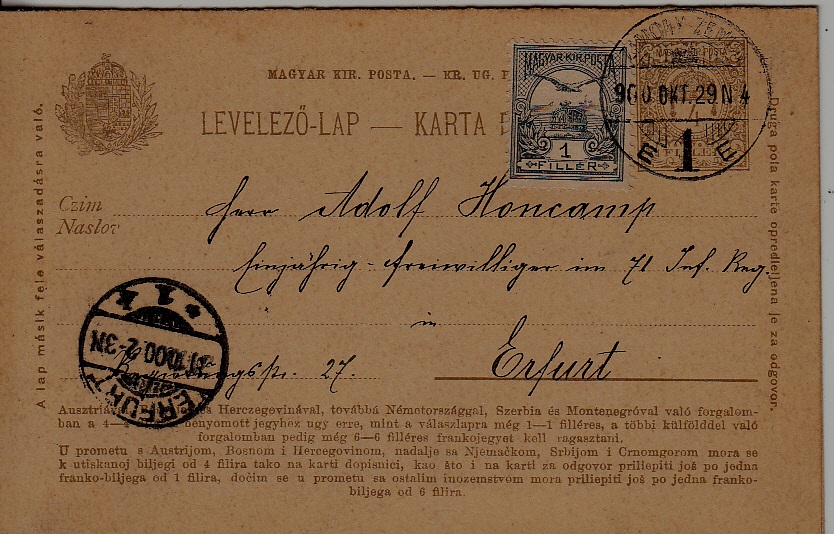 MAGYAR KIR. POSTA. — KR. UG. P
LEVELEZŐ-LAP — KARTA
MAGYAR KIR. POSTA
1
FILLÉR
900 OKT. 29 N 4
1
4
Czim
Naslov
Herr Adolf Honcamp
Einjährig-Freiwilliger im 71 Inf. Reg.
in
Erfurt
Regierungsstr. 27.
ERFURT
10 00 2-3N
* 1 k
A lap másik fele válaszadásra való.
Druga pola karte opredieljena je za odgovor.
Ausztriával, Herczegovinával, továbbá Németországgal, Szerbia és Montenegróval való forgalom-
ban a 4-4 benyomott jegyhez ugy erre, mint a válaszlapra még 1—1 filléres, a többi külfölddel való
forgalomban pedig még 6—6 filléres frankojegyet kell ragasztani.
U prometu s Austrijom, Bosnom i Hercegovinom, nadalje sa Njemačkom, Srbijom i Crnomgorom mora se
k utiskanoj biljegi od 4 filira tako na karti dopisnici, kao što i na karti za odgovor priliepiti još po jedna
franko-biljega od 1 filira, dočim se u prometu sa ostalim inozemstvom mora priliepiti još po jedna franko-
biljega od 6 filira.